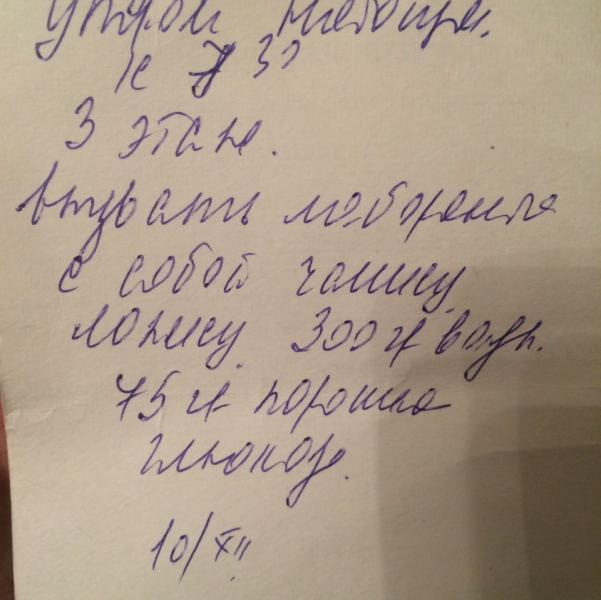 утром натощак.
к 7 30
3 этаж.
вызвать лаборанта
с собой чашку
ложку 300 гр воды.
75 гр порошка
глюкозы.
10/XII